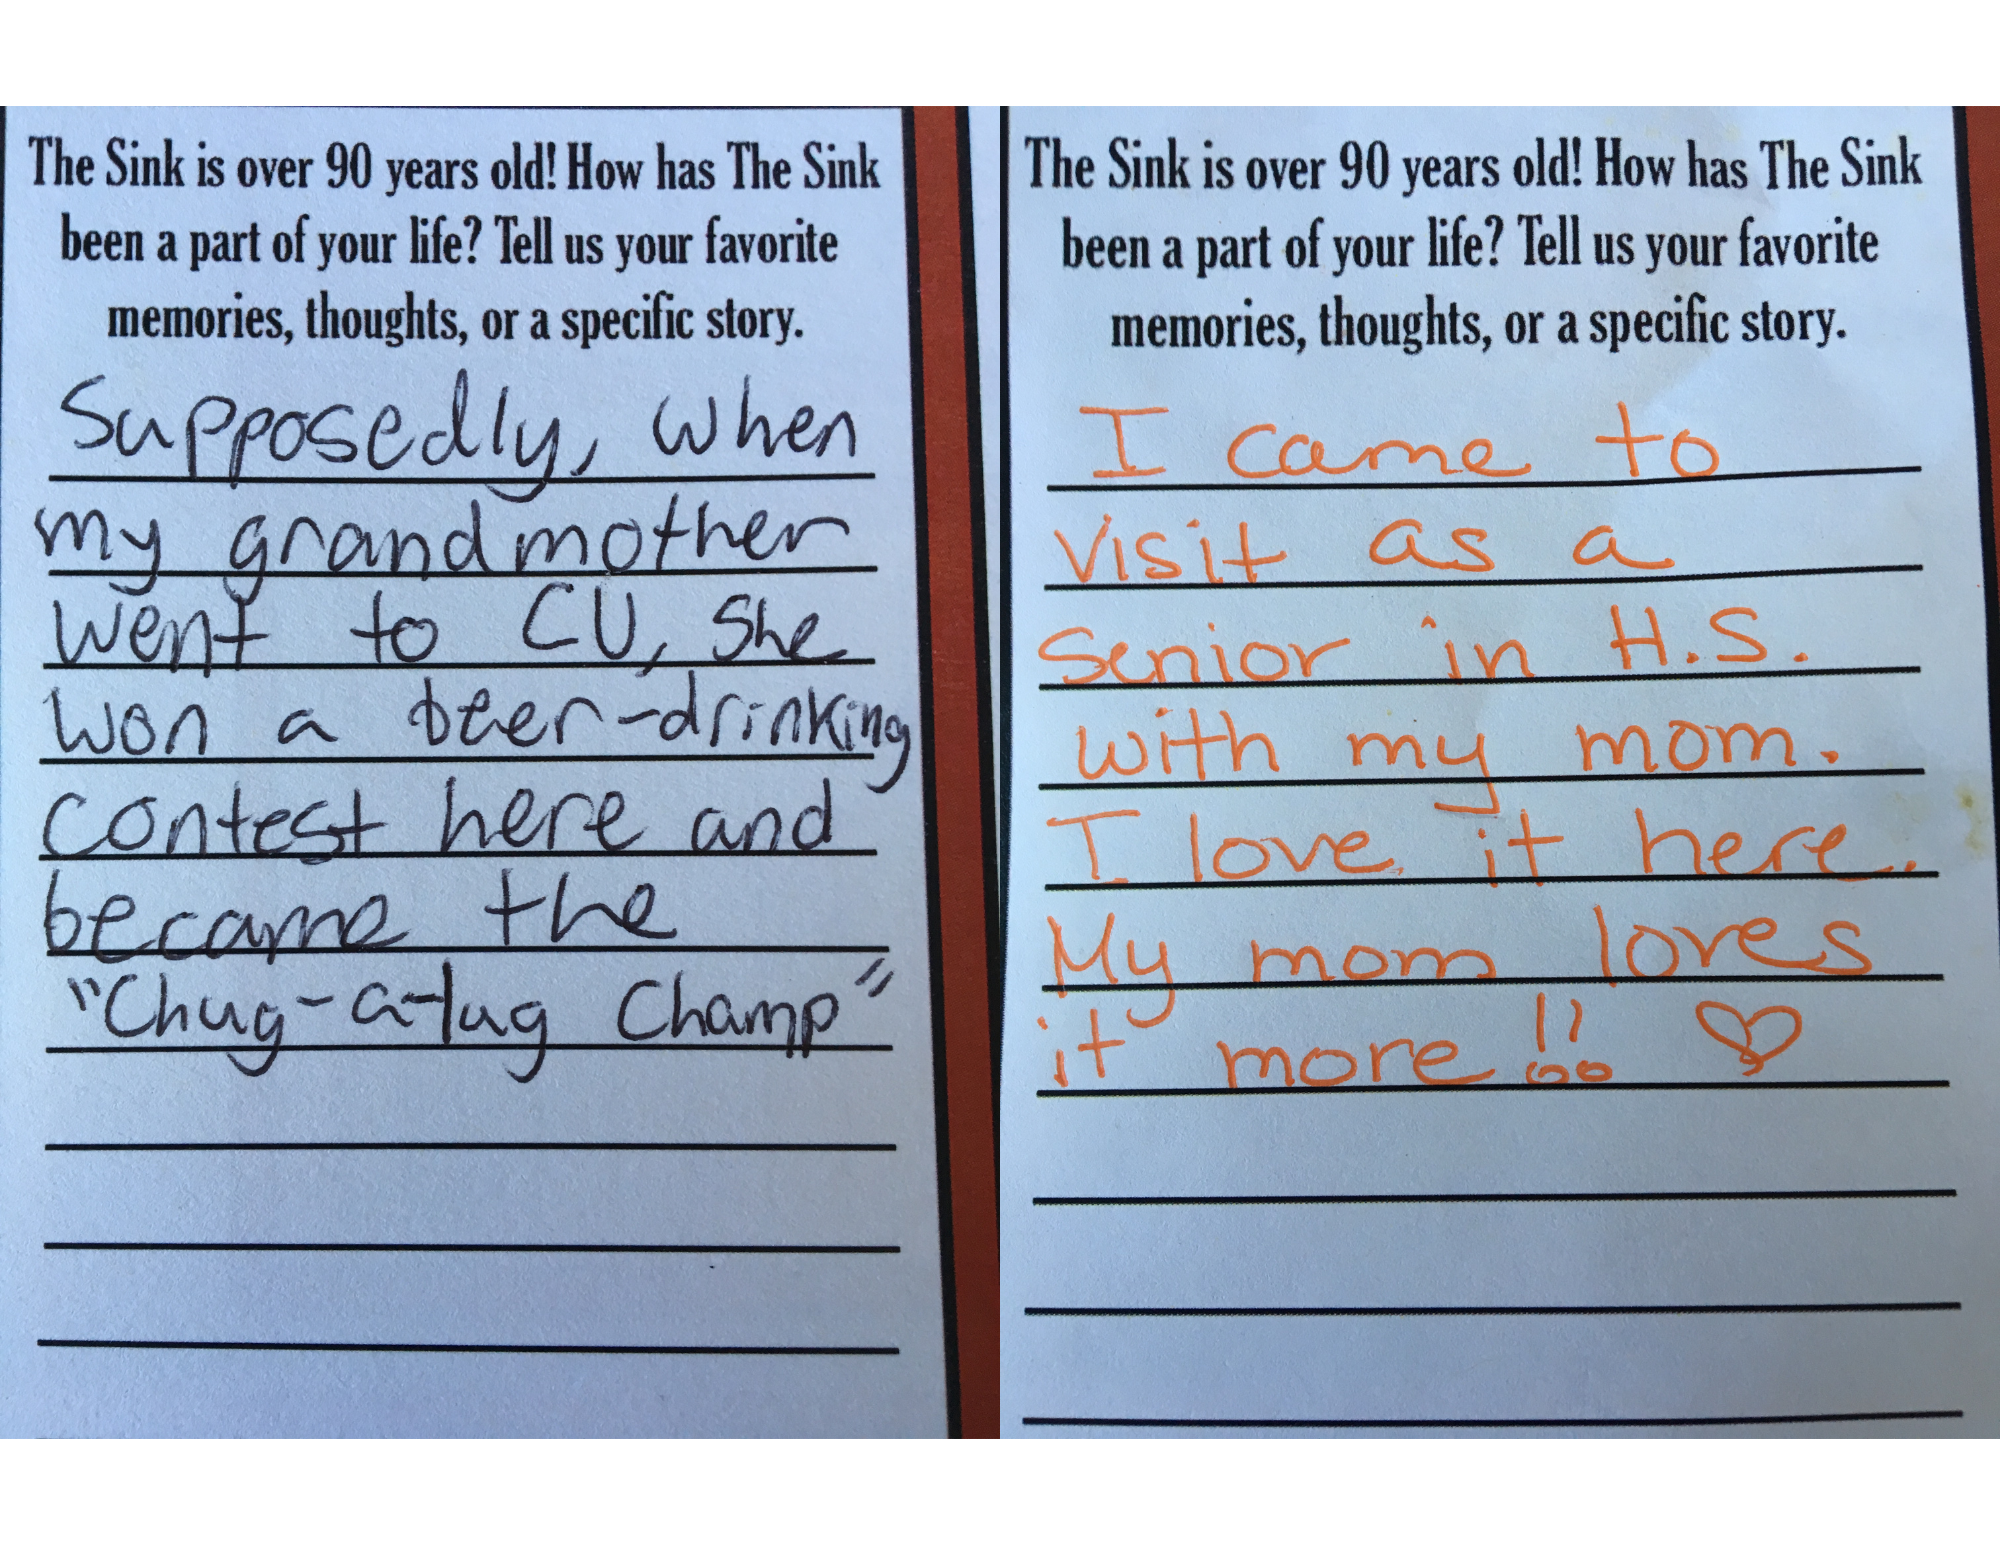 The Sink is over 90 years old! How has The Sink
been a part of your life? Tell us your favorite
memories, thoughts, or a specific story.
Supposedly, when
my grandmother
went to CU, she
won a beer-drinking
contest here and
became the
"Chug-a-lug Champ"
The Sink is over 90 years old! How has The Sink
been a part of your life? Tell us your favorite
memories, thoughts, or a specific story.
I came to
visit as a
senior in H.S.
with my mom.
I love it here.
My mom loves
it more!! ♡